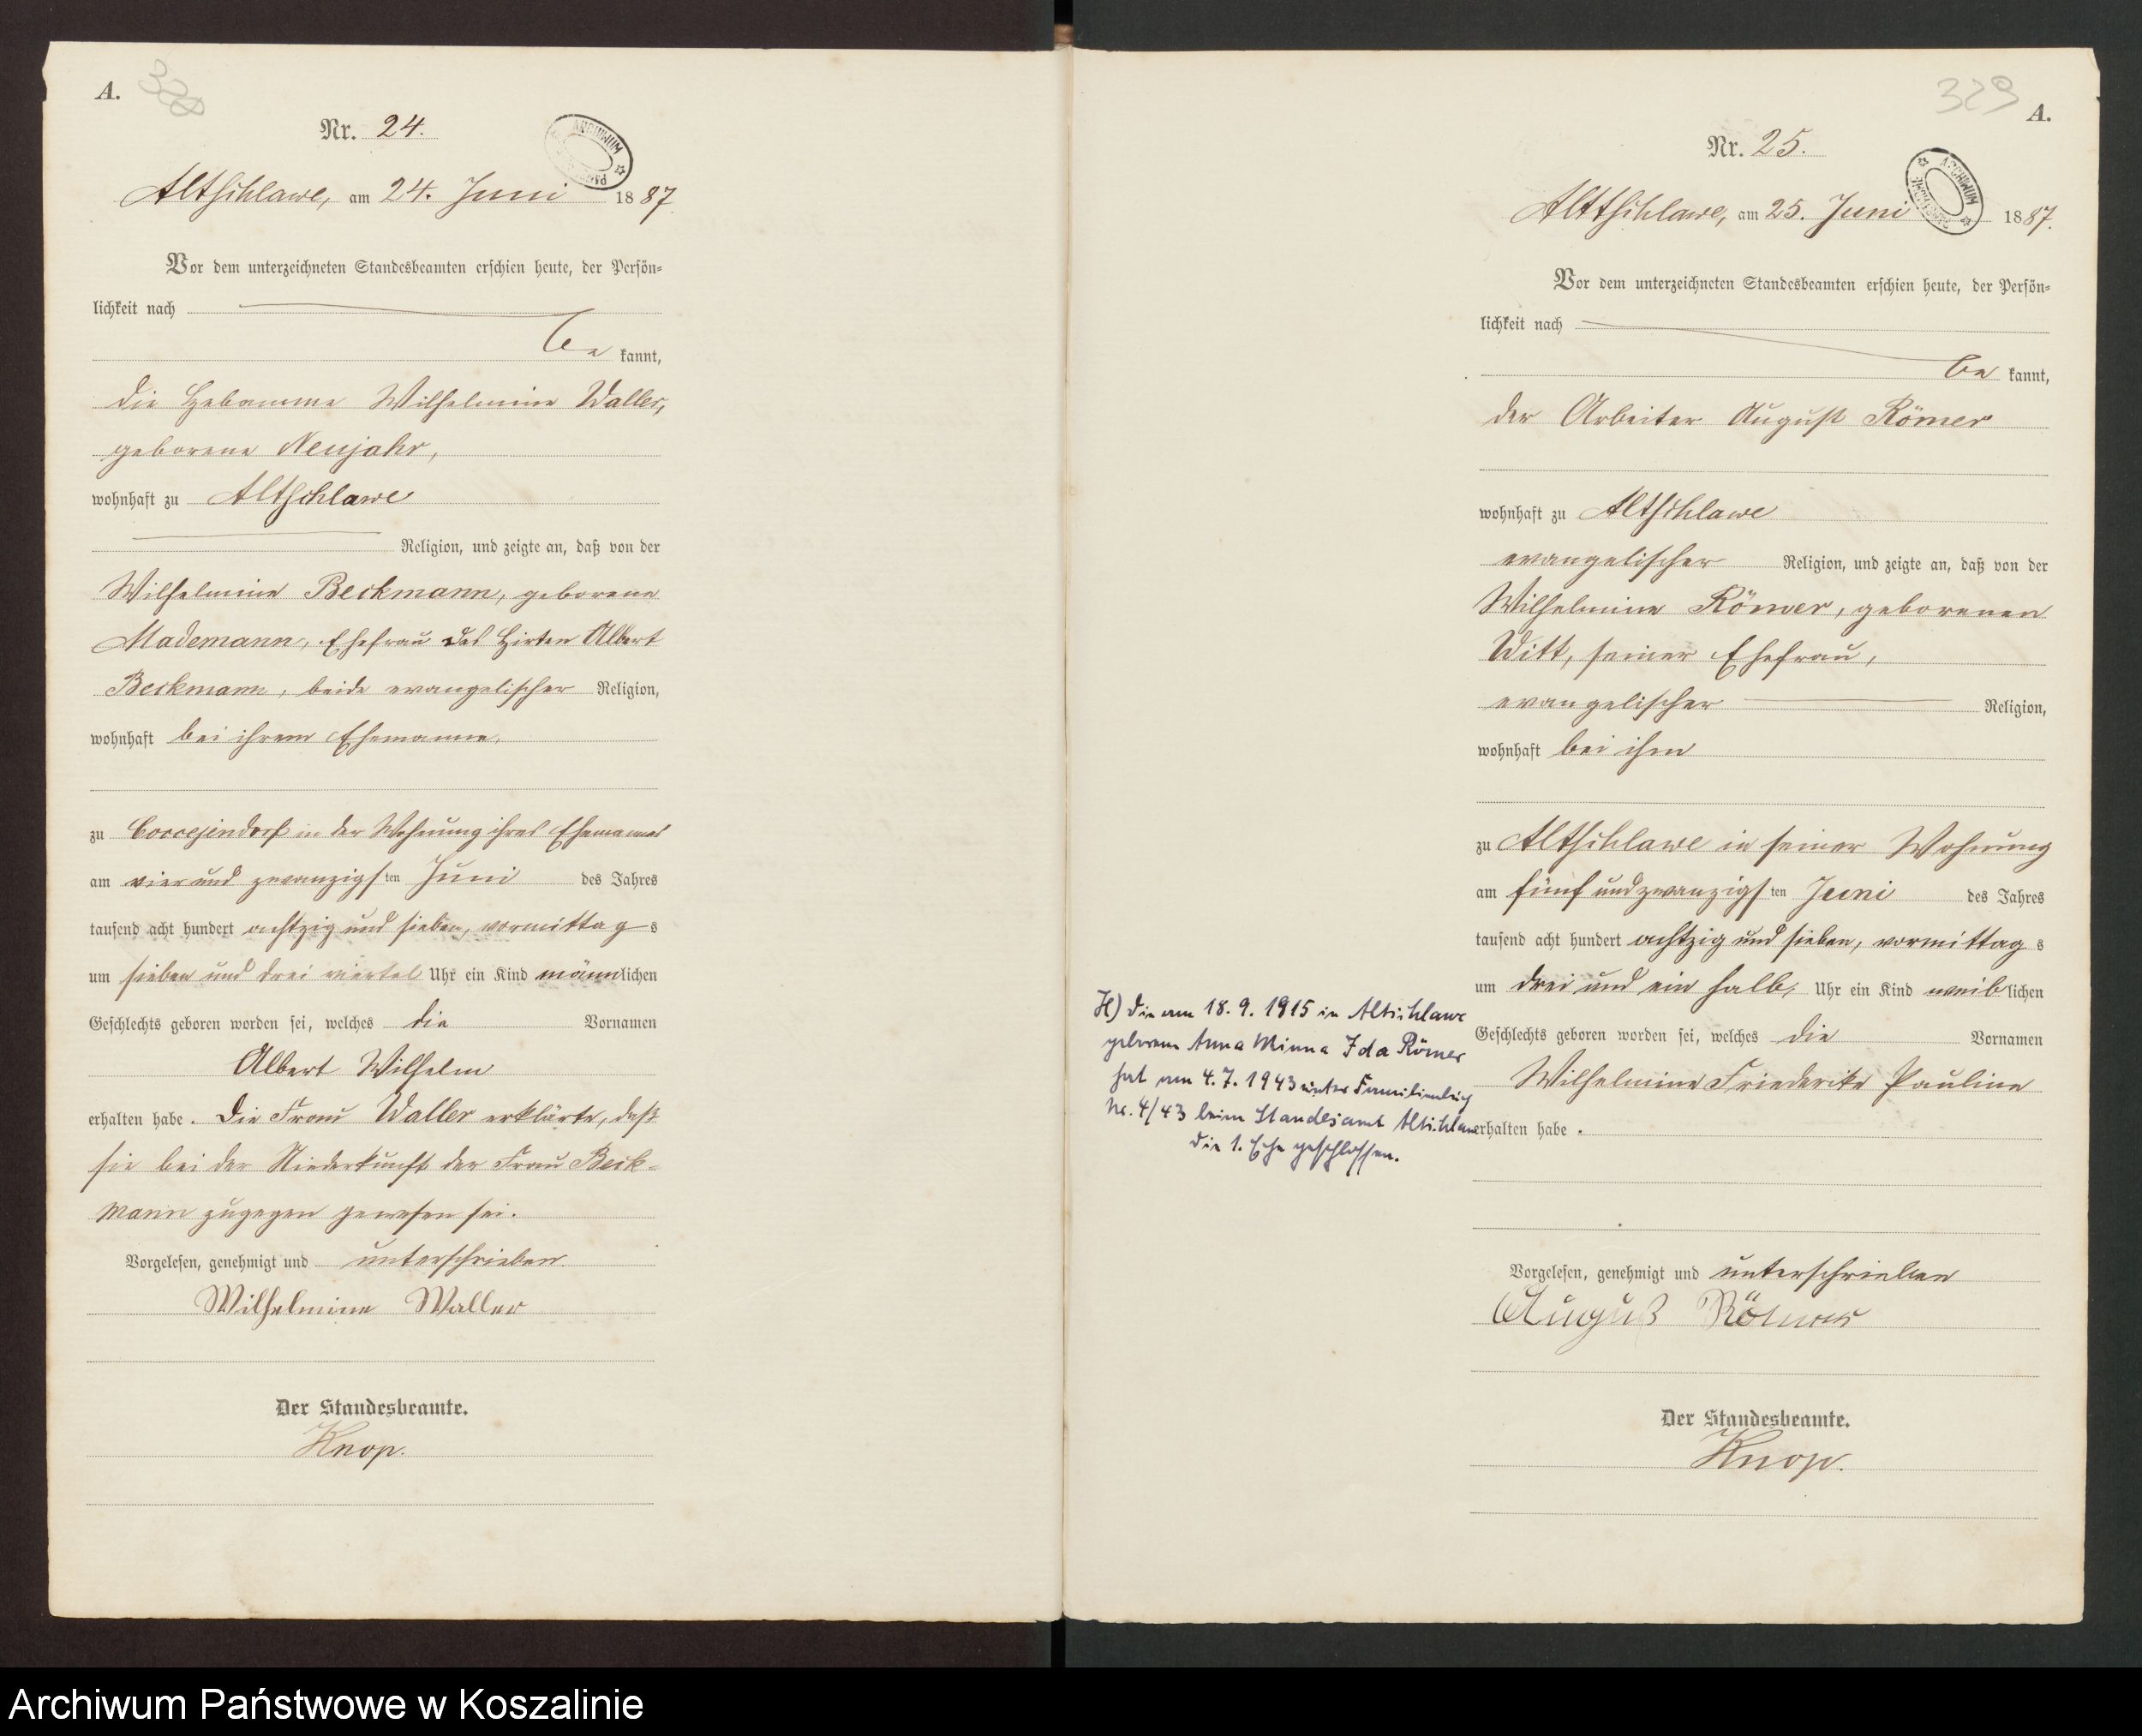 A.
Nr. 24.
ARCHIWUM
Altschlawe, am 24. Juni 1887
Vor dem unterzeichneten Standesbeamten erschien heute, der Persön-
lichkeit nach
be kannt,
die Hebamme Wilhelmine Waller,
geborene Neujahr,
wohnhaft zu Altschlawe
Religion, und zeigte an, daß von der
Wilhelmine Beckmann, geborene
Mademann, Ehefrau des Hirten Albert
Beckmann, beide evangelischer Religion,
wohnhaft bei ihrem Ehemanne,
zu Coccejendorf in der Wohnung ihres Ehemannes
am vier und zwanzigsten Juni des Jahres
tausend acht hundert achtzig und sieben, vormittags
um sieben und drei viertel Uhr ein Kind männlichen
Geschlechts geboren worden sei, welches die Vornamen
Albert Wilhelm
erhalten habe. Die Frau Waller erklärte, daß
sie bei der Niederkunft der Frau Beck-
mann zugegen gewesen sei.
Vorgelesen, genehmigt und unterschrieben
Wilhelmine Waller
Der Standesbeamte.
Knop.
329
A.
Nr. 25.
ARCHIWUM
Altschlawe, am 25. Juni 1887.
Vor dem unterzeichneten Standesbeamten erschien heute, der Persön-
lichkeit nach
be kannt,
der Arbeiter August Römer
wohnhaft zu Altschlawe
evangelischer Religion, und zeigte an, daß von der
Wilhelmine Römer, geborenen
Witt, seiner Ehefrau,
evangelischer Religion,
wohnhaft bei ihm
zu Altschlawe in seiner Wohnung
am fünf und zwanzigsten Juni des Jahres
tausend acht hundert achtzig und sieben, vormittags
um drei und ein halb, Uhr ein Kind weiblichen
Geschlechts geboren worden sei, welches die Vornamen
Wilhelmine Friederike Pauline
erhalten habe.
Vorgelesen, genehmigt und unterschrieben
August Römer
Der Standesbeamte.
Knop.
H) Die am 18. 9. 1915 in Altschlawe
geborene Anna Minna Ida Römer
hat am 4. 7. 1943 unter Familienbuch
Nr. 4/43 beim Standesamt Altschlawe
die 1. Ehe geschlossen.
Archiwum Państwowe w Koszalinie